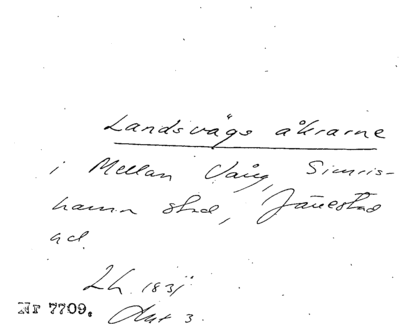 Landsvägs åkrarne
i Mellan Vång, Simris-
hamn stad, Järrestad
hd.
Lh 1831
Akt 3.
Nr 7709.